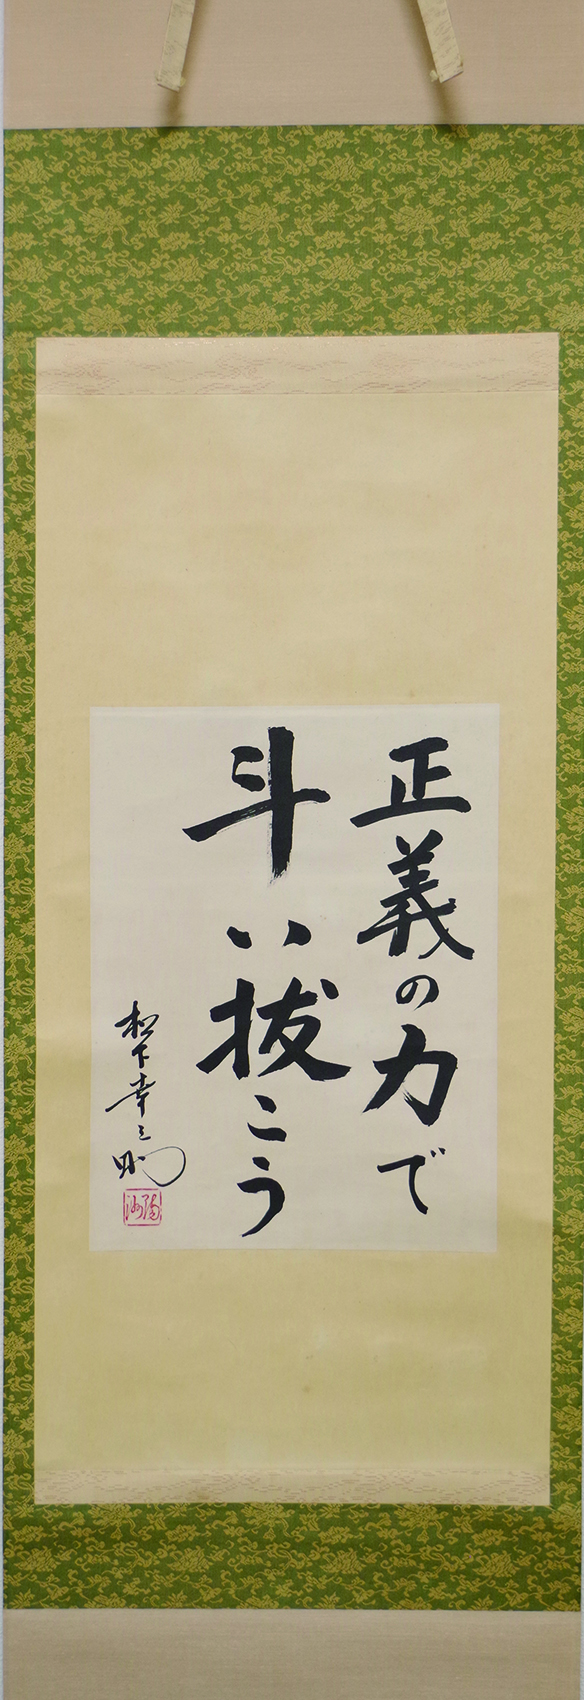 正義の力で
斗い抜こう
松下幸之助